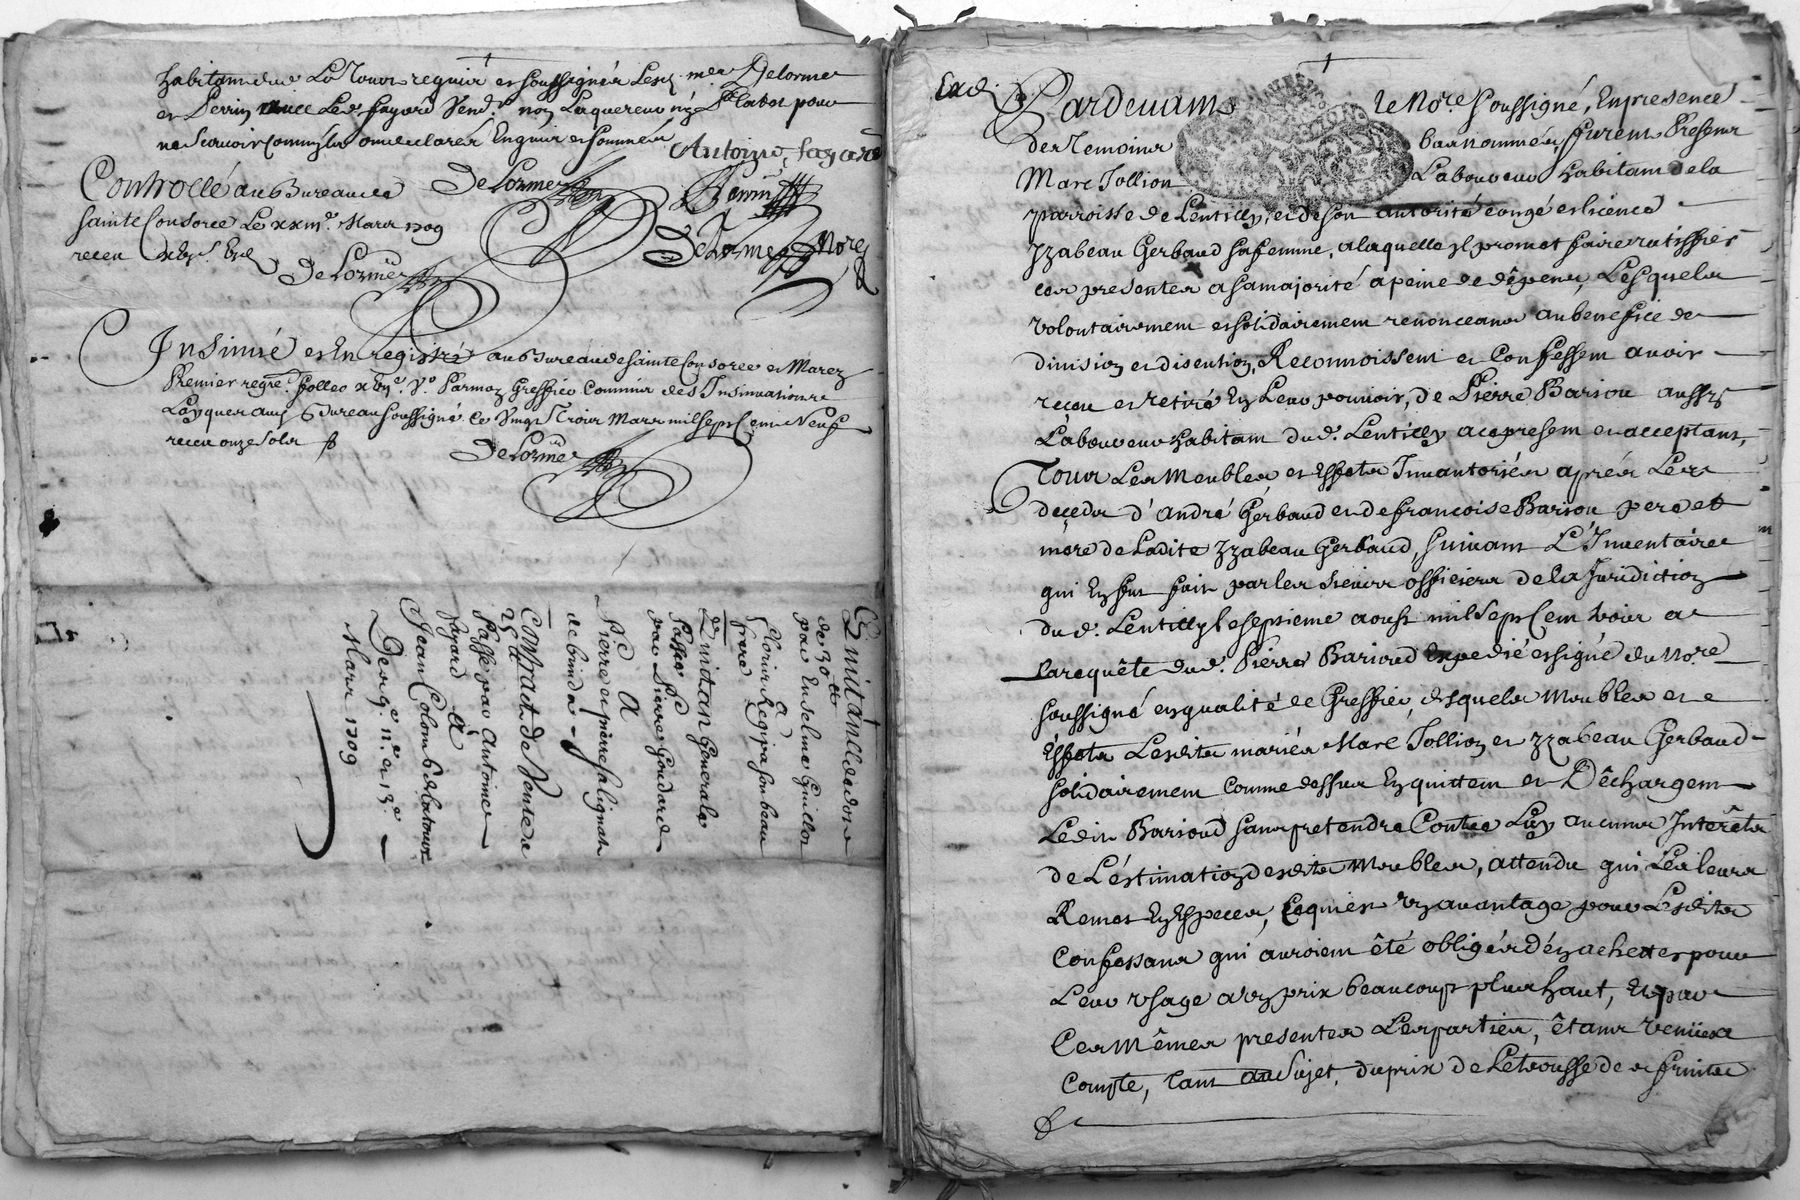 habitant de La Tour requis et soussignés Lesd. mes Delorme
et Perrin avec Led. fayard Vendr. non Laquereur ny
ne scavoir
Antoine, fayard
Controllé au Bureau de
DeLorme
Perrin
Sainte Consorce Le xxiii.e Mars 1709
receu
DeLorme
DeLorme Nore
Insinué et Enregistré au Bureau de Sainte Consorce et Marcy
Premier regre. folleo Par moy Greffier Commis des Insinuations
Laÿques aud. Bureau soussigné ce Vingt Trois Mars mil sept Cent Neuf
receu onze sols
DeLorme
Quittance de dot
de 30 lt
par Enselme Guillot
A
Floris Regipa son beau
frere
Quittan Generale
Passée
par Pierre Goudard
A
Pierre et pierre falignat
de
Contract de Vente de
25 lt
Passé par Antoine
fayard
A
Jean Colomb de latour
Des 9.e 11.e et 13.e
Mars 1709
Exd.
Pardevant le No.re soussigné, En presence
des Temoins bas nommés furent Presents
Marc Jollion Laboureur habitant de la
parroisse de Lentilly, et de son autorité congé et licence
Izabeau Gerbaud sa femme, a laquelle il promet faire ratiffier
ces presentes a sa majorité a peine de dêpens, Lesquels
volontairement et solidairement renonceans au benefice de
division et discution, Reconnoissent et Confessent avoir
reçeu et retiré En Leur pouvoir, de Pierre Bariou aussy
Laboureur habitant dud. Lentilly ace present et acceptant,
Tous Les Meubles et Effets Inventoriés aprés Les
deçeds d'André Gerbaud et de francoise Bariou pere et
mere de Ladite Izabeau Gerbaud, suivant L'Inventaire
qui En fut fait par les sieurs officiers de la Juridiction
dud. Lentilly le septieme aoust mil sept Cent trois a
la requête dud. Pierre Barioud Expedié et signé du No.re
soussigné en qualité de Greffier, desquels Meubles et
Effets Lesdits mariés Marc Jollion et Izabeau Gerbaud
solidairement comme dessus En quittent et Dêchargent
Ledit Barioud sans pretendre Contre Luy aucuns Interêts
de L'éstimation desdits Meubles, attendu qui Les leurs
Remet En Especes, Ce qui est un avantage pour Lesdits
Confessans qui auroient été obligés d'én achetter pour
Leur usage a'un prix beaucoup plus haut, Et par
Ces Mêmes presentes Les parties, êtant venües a
Compte, tant au Sujet, du prix de Letrousse des fruits